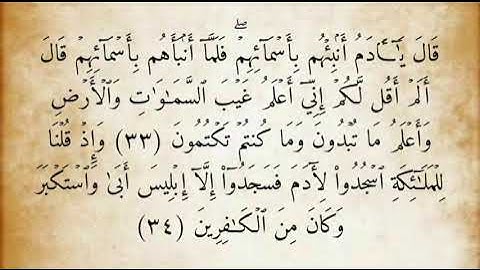 قَالَ يَـٰٓـَٔادَمُ أَنۢبِئۡهُم بِأَسۡمَآئِهِمۡۖ فَلَمَّآ أَنۢبَأَهُم بِأَسۡمَآئِهِمۡ قَالَ
أَلَمۡ أَقُل لَّكُمۡ إِنِّيٓ أَعۡلَمُ غَيۡبَ ٱلسَّمَـٰوَٰتِ وَٱلۡأَرۡضِ
وَأَعۡلَمُ مَا تُبۡدُونَ وَمَا كُنتُمۡ تَكۡتُمُونَ (٣٣) وَإِذۡ قُلۡنَا
لِلۡمَلَـٰٓئِكَةِ ٱسۡجُدُواْ لِأٓدَمَ فَسَجَدُوٓاْ إِلَّآ إِبۡلِيسَ أَبَىٰ وَٱسۡتَكۡبَرَ
وَكَانَ مِنَ ٱلۡكَـٰفِرِينَ (٣٤)